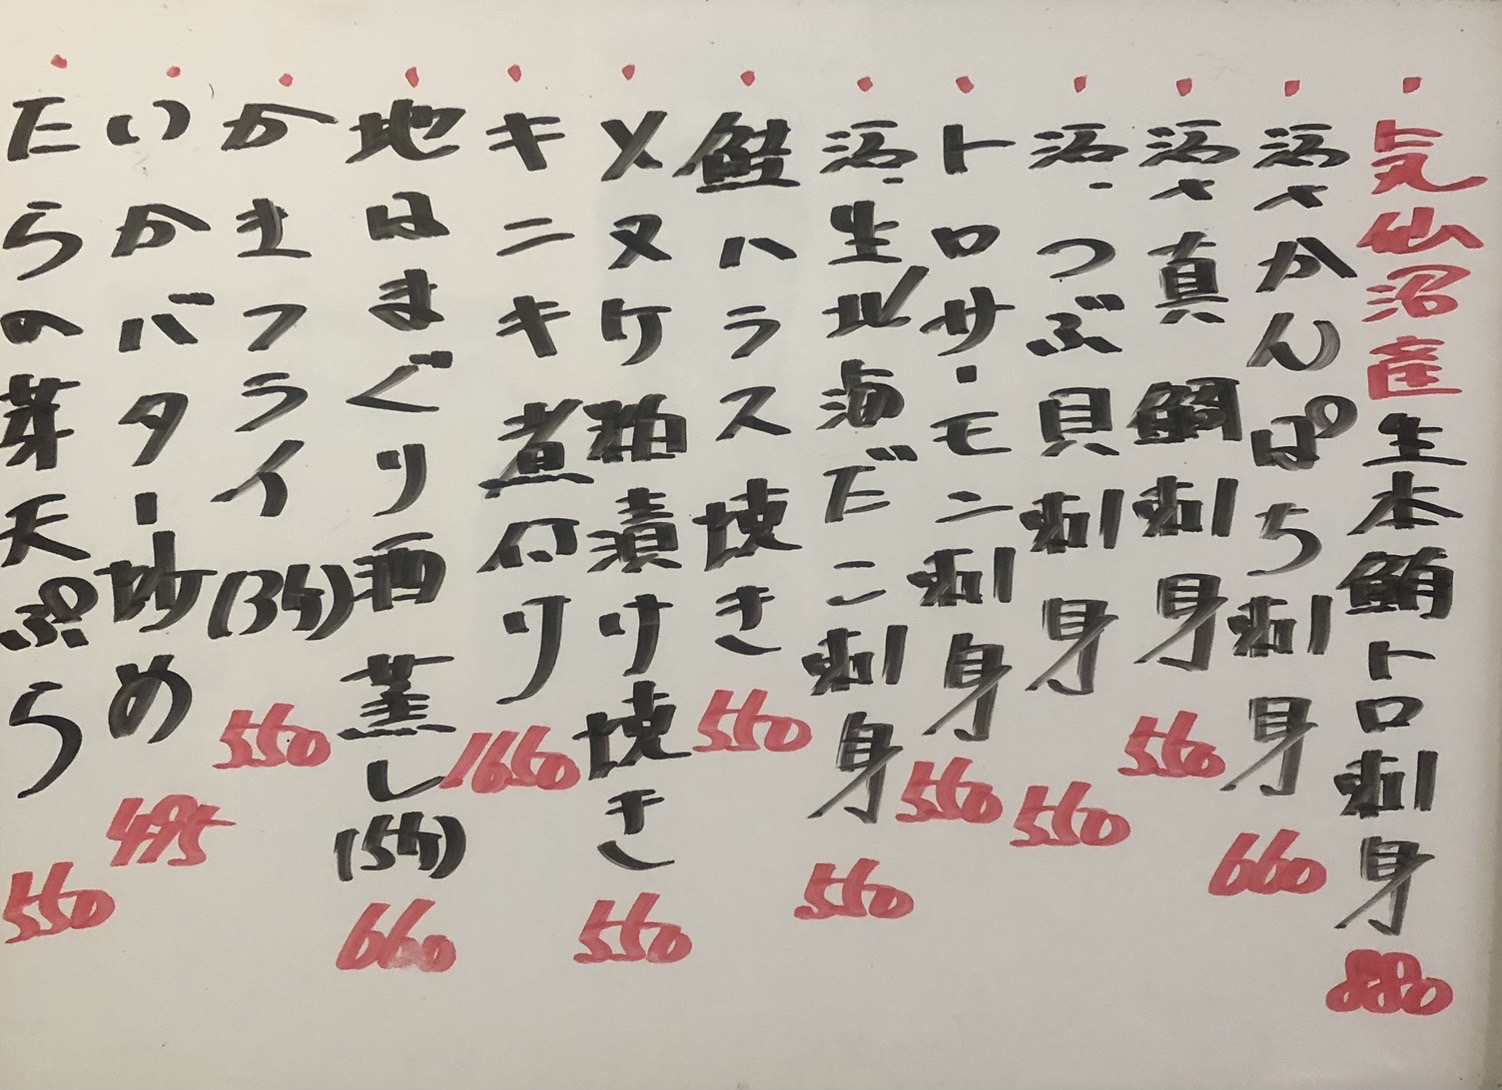 ・気仙沼産生本鮪トロ刺身 880
・活〆かんぱち刺身 660
・活〆真鯛刺身 550
・活つぶ貝刺身 550
・トロサーモン刺身 550
・活生北海だこ刺身 550
・鮭ハラス焼き 550
・メヌケ粕漬け焼き 550
・キンキ煮付け 1650
・地はまぐり酒蒸し(5ケ) 660
・かきフライ(3ケ) 550
・いかバター炒め 495
・たらの芽天ぷら 550